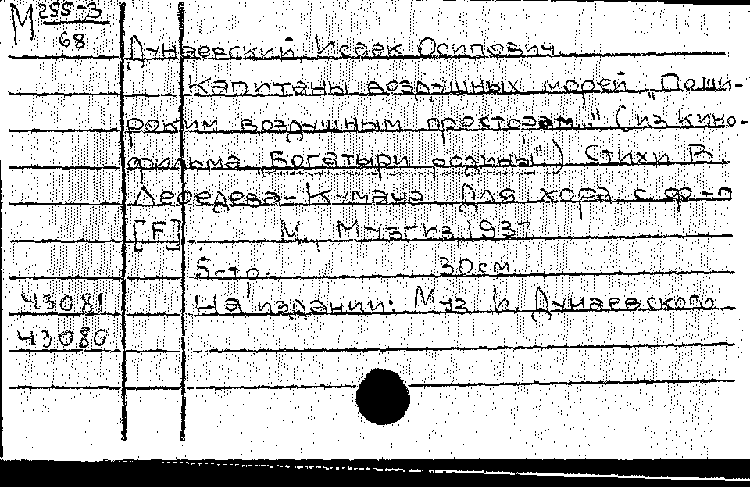 М 255-3
68
Дунаевский Исаак Осипович
Капитаны воздушных морей „По ши-
роким воздушным просторам..." (из кино-
фильма „Богатыри родины") Стихи В.
Лебедева-Кумача Для хора с ф-п
[F] М., Музгиз 1937
5-то. 30см
43081 На издании: Муз И. Дунаевского
43080